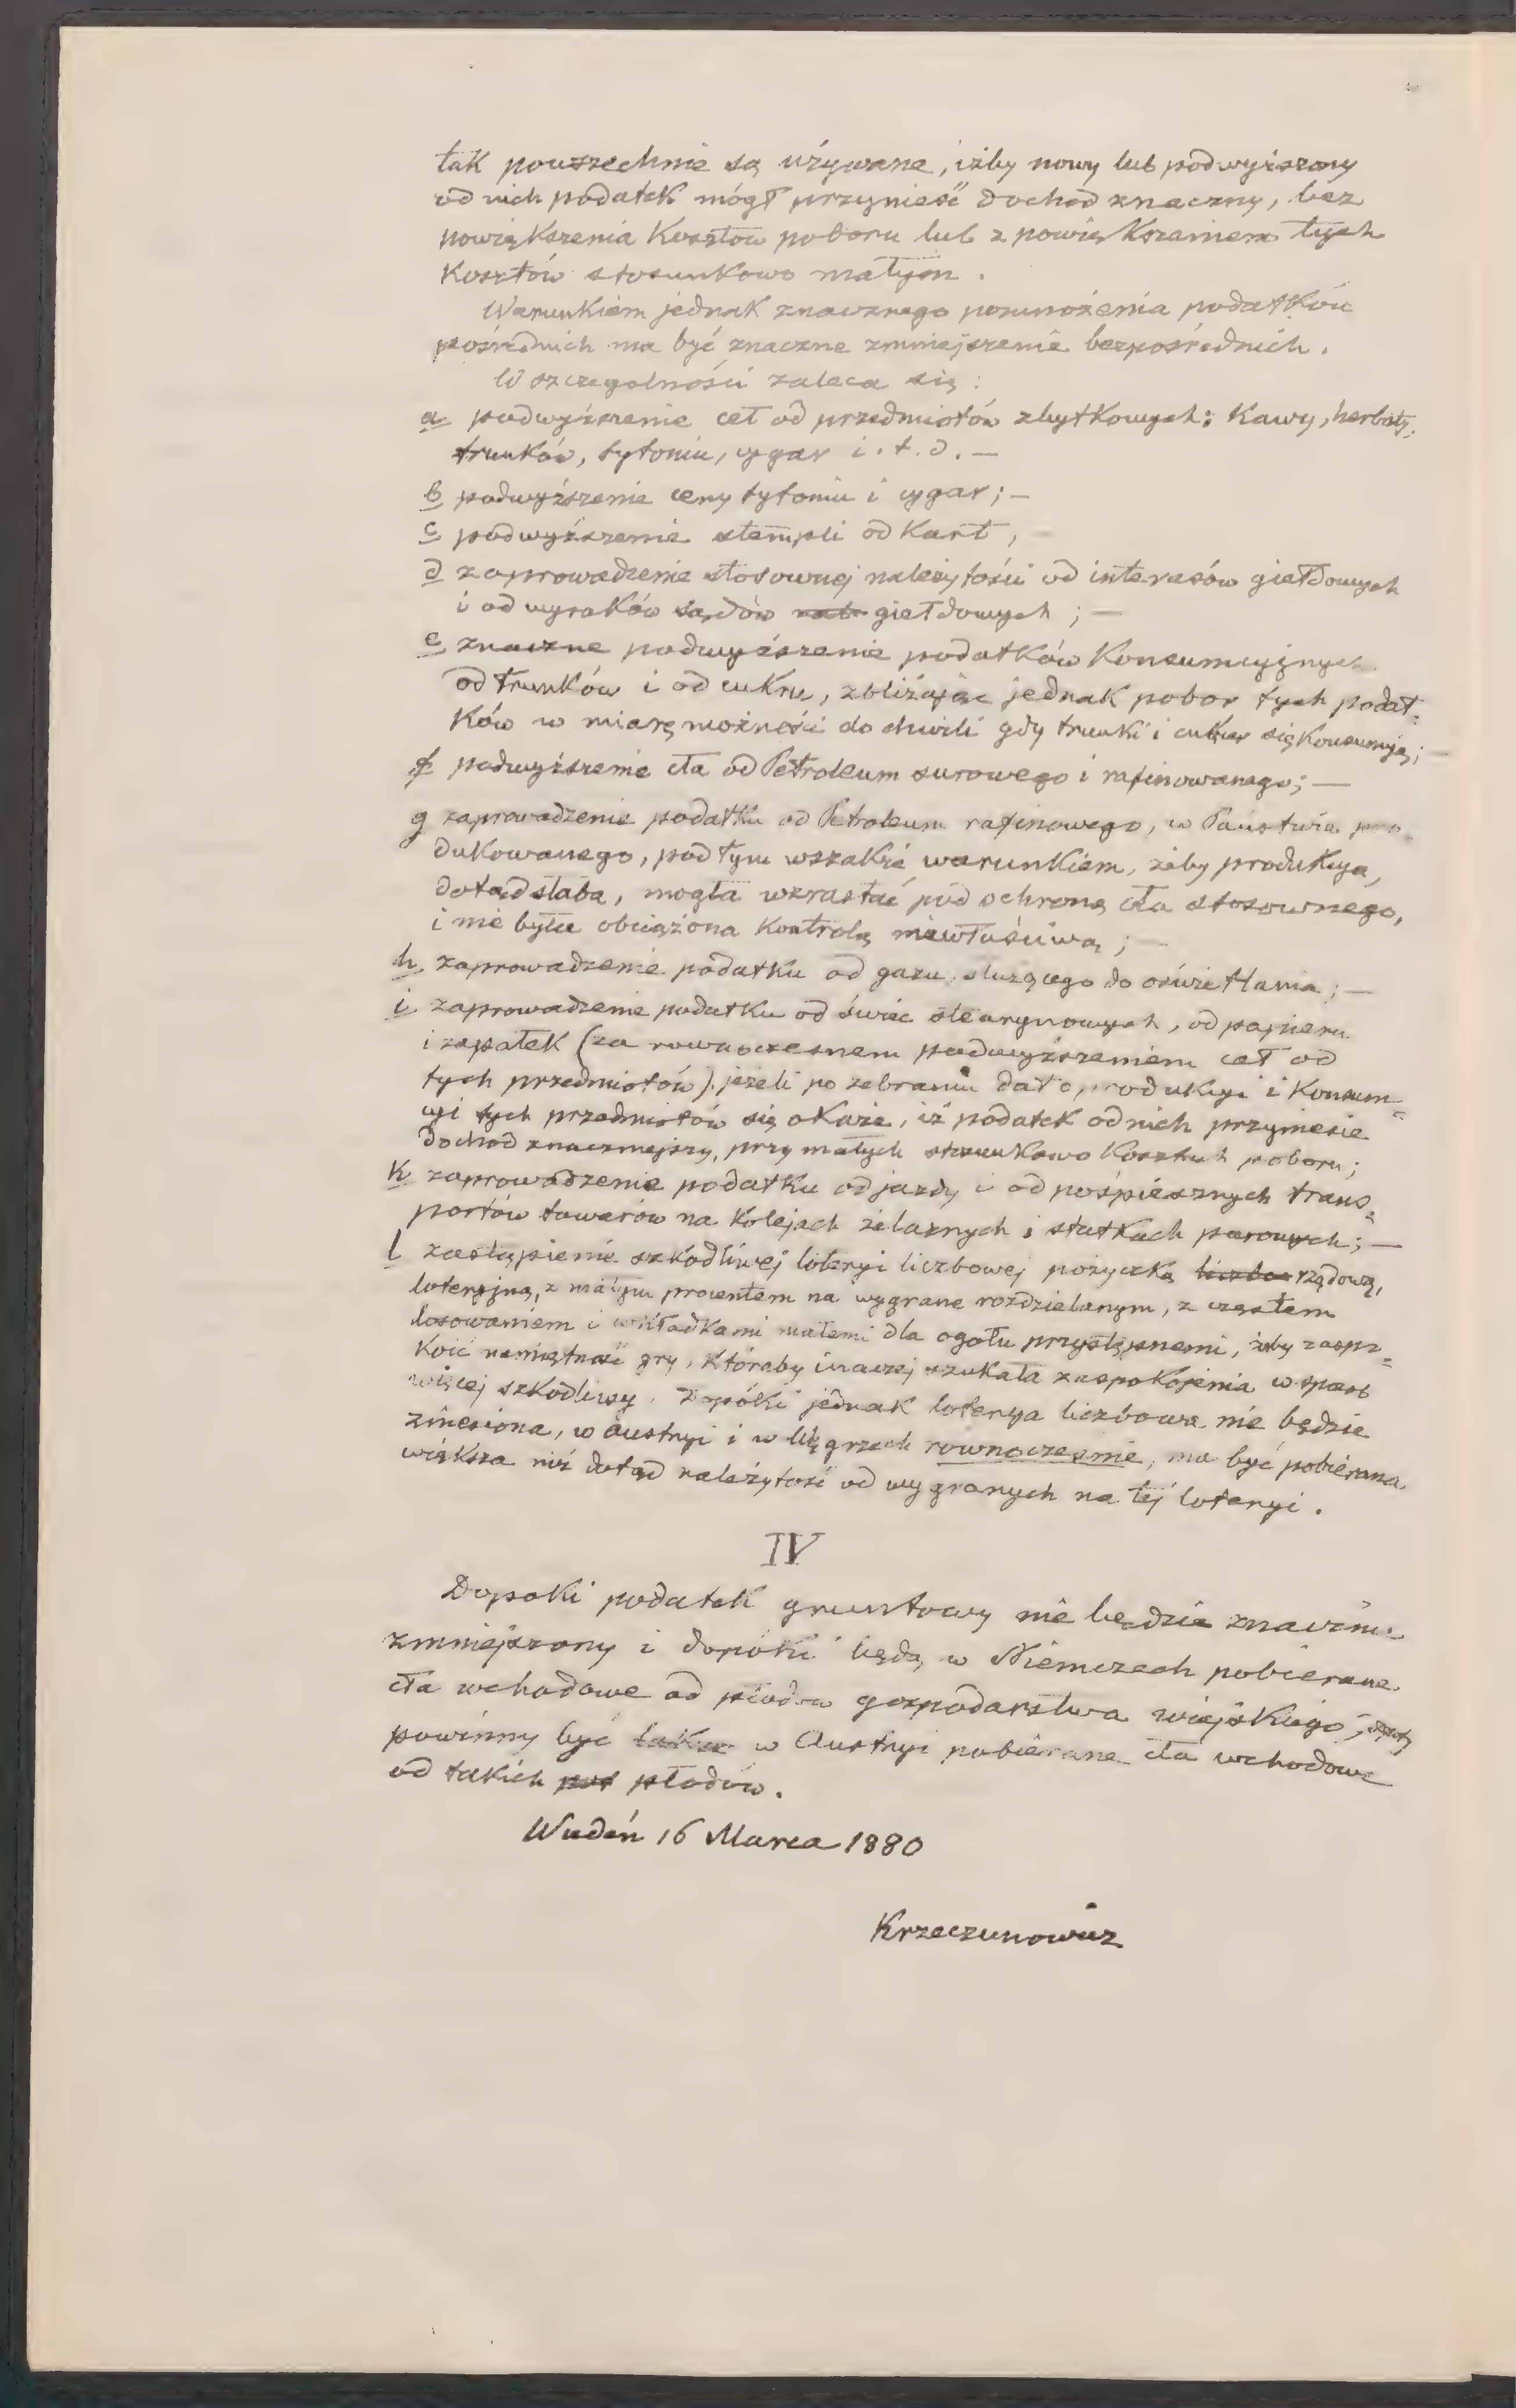 tak powszechnie są używane, iżby nowy lub podwyższony
od nich podatek mógł przynieść dochod znaczny, bez
powiększenia Kosztów poboru lub z powiększeniem tych
Kosztów stosunkowo małym.
Warunkiem jednak znacznego pomnożenia podatków
pośrednich ma być znaczne zmniejszenie bezpośrednich.
W szczegolności zaleca się:
a podwyższenie ceł od przedmiotów zbytkowych: Kawy, herbaty,
trunków, tytoniu, cygar i. t. d. —
b podwyższenie ceny tytoniu i cygar; —
c podwyższenie stempli od Kart, —
d zaprowadzenie stosownej należytości od interesów giełdowych
i od wyroków sądów giełdowych; —
e znaczne podwyższenie podatków Konsumcyjnych
od trunków i od cukru, zbliżając jednak pobor tych podat=
ków w miarę możności do chwili gdy trunki i cukier się Konsumują; —
f podwyższenie cła od Petroleum surowego i rafinowanego; —
g zaprowadzenie podatku od Petroleum rafinowego, w Państwie pro=
dukowanego, pod tym wszakże warunkiem, żeby produkcya,
dotąd słaba, mogła wzrastać pod ochroną cła stosownego,
i nie była obciążona Kontrolą niewłaściwą; —
h zaprowadzenie podatku od gazu, służącego do oświetlania; —
i zaprowadzenie podatku od świec stearynowych, od papieru
i zapałek (za rownoczesnem podwyższeniem ceł od
tych przedmiotów), jeżeli po zebraniu dat o produkcyi i Konsum=
cyi tych przedmiotów się okaże, iż podatek od nich przyniesie
dochod znaczniejszy, przy małych stosunkowo Kosztach poboru;
k zaprowadzenie podatku od jazdy i od pośpiesznych trans=
portów towarów na Kolejach żelaznych i statkach parowych; —
l zastąpienie szkodliwej loteryi liczbowej pożyczką liczbow rządową,
loteryjną, z małym procentem na wygrane rozdzielanym, z częstem
losowaniem i wkładkami małemi dla ogołu przystępnemi, żeby zaspo=
koić namiętność gry, któraby inaczej szukała zaspokojenia w sposób
więcej szkodliwy. Dopóki jednak loterya liczbowa nie będzie
zniesiona, w Austryi i w Węgrzech rownocześnie, ma być pobierana
większa niż dotąd należytość od wygranych na tej loteryi.
IV
Dopoki podatek gruntowy nie będzie znacznie
zmniejszony i dopóki będą w Niemczech pobierane
cła wchodowe od płodów gospodarstwa wiejskiego,
powinny być także w Austryi pobierane cła wchodowe
od takich płodów.
Wiedeń 16 Marca 1880
Krzeczunowicz